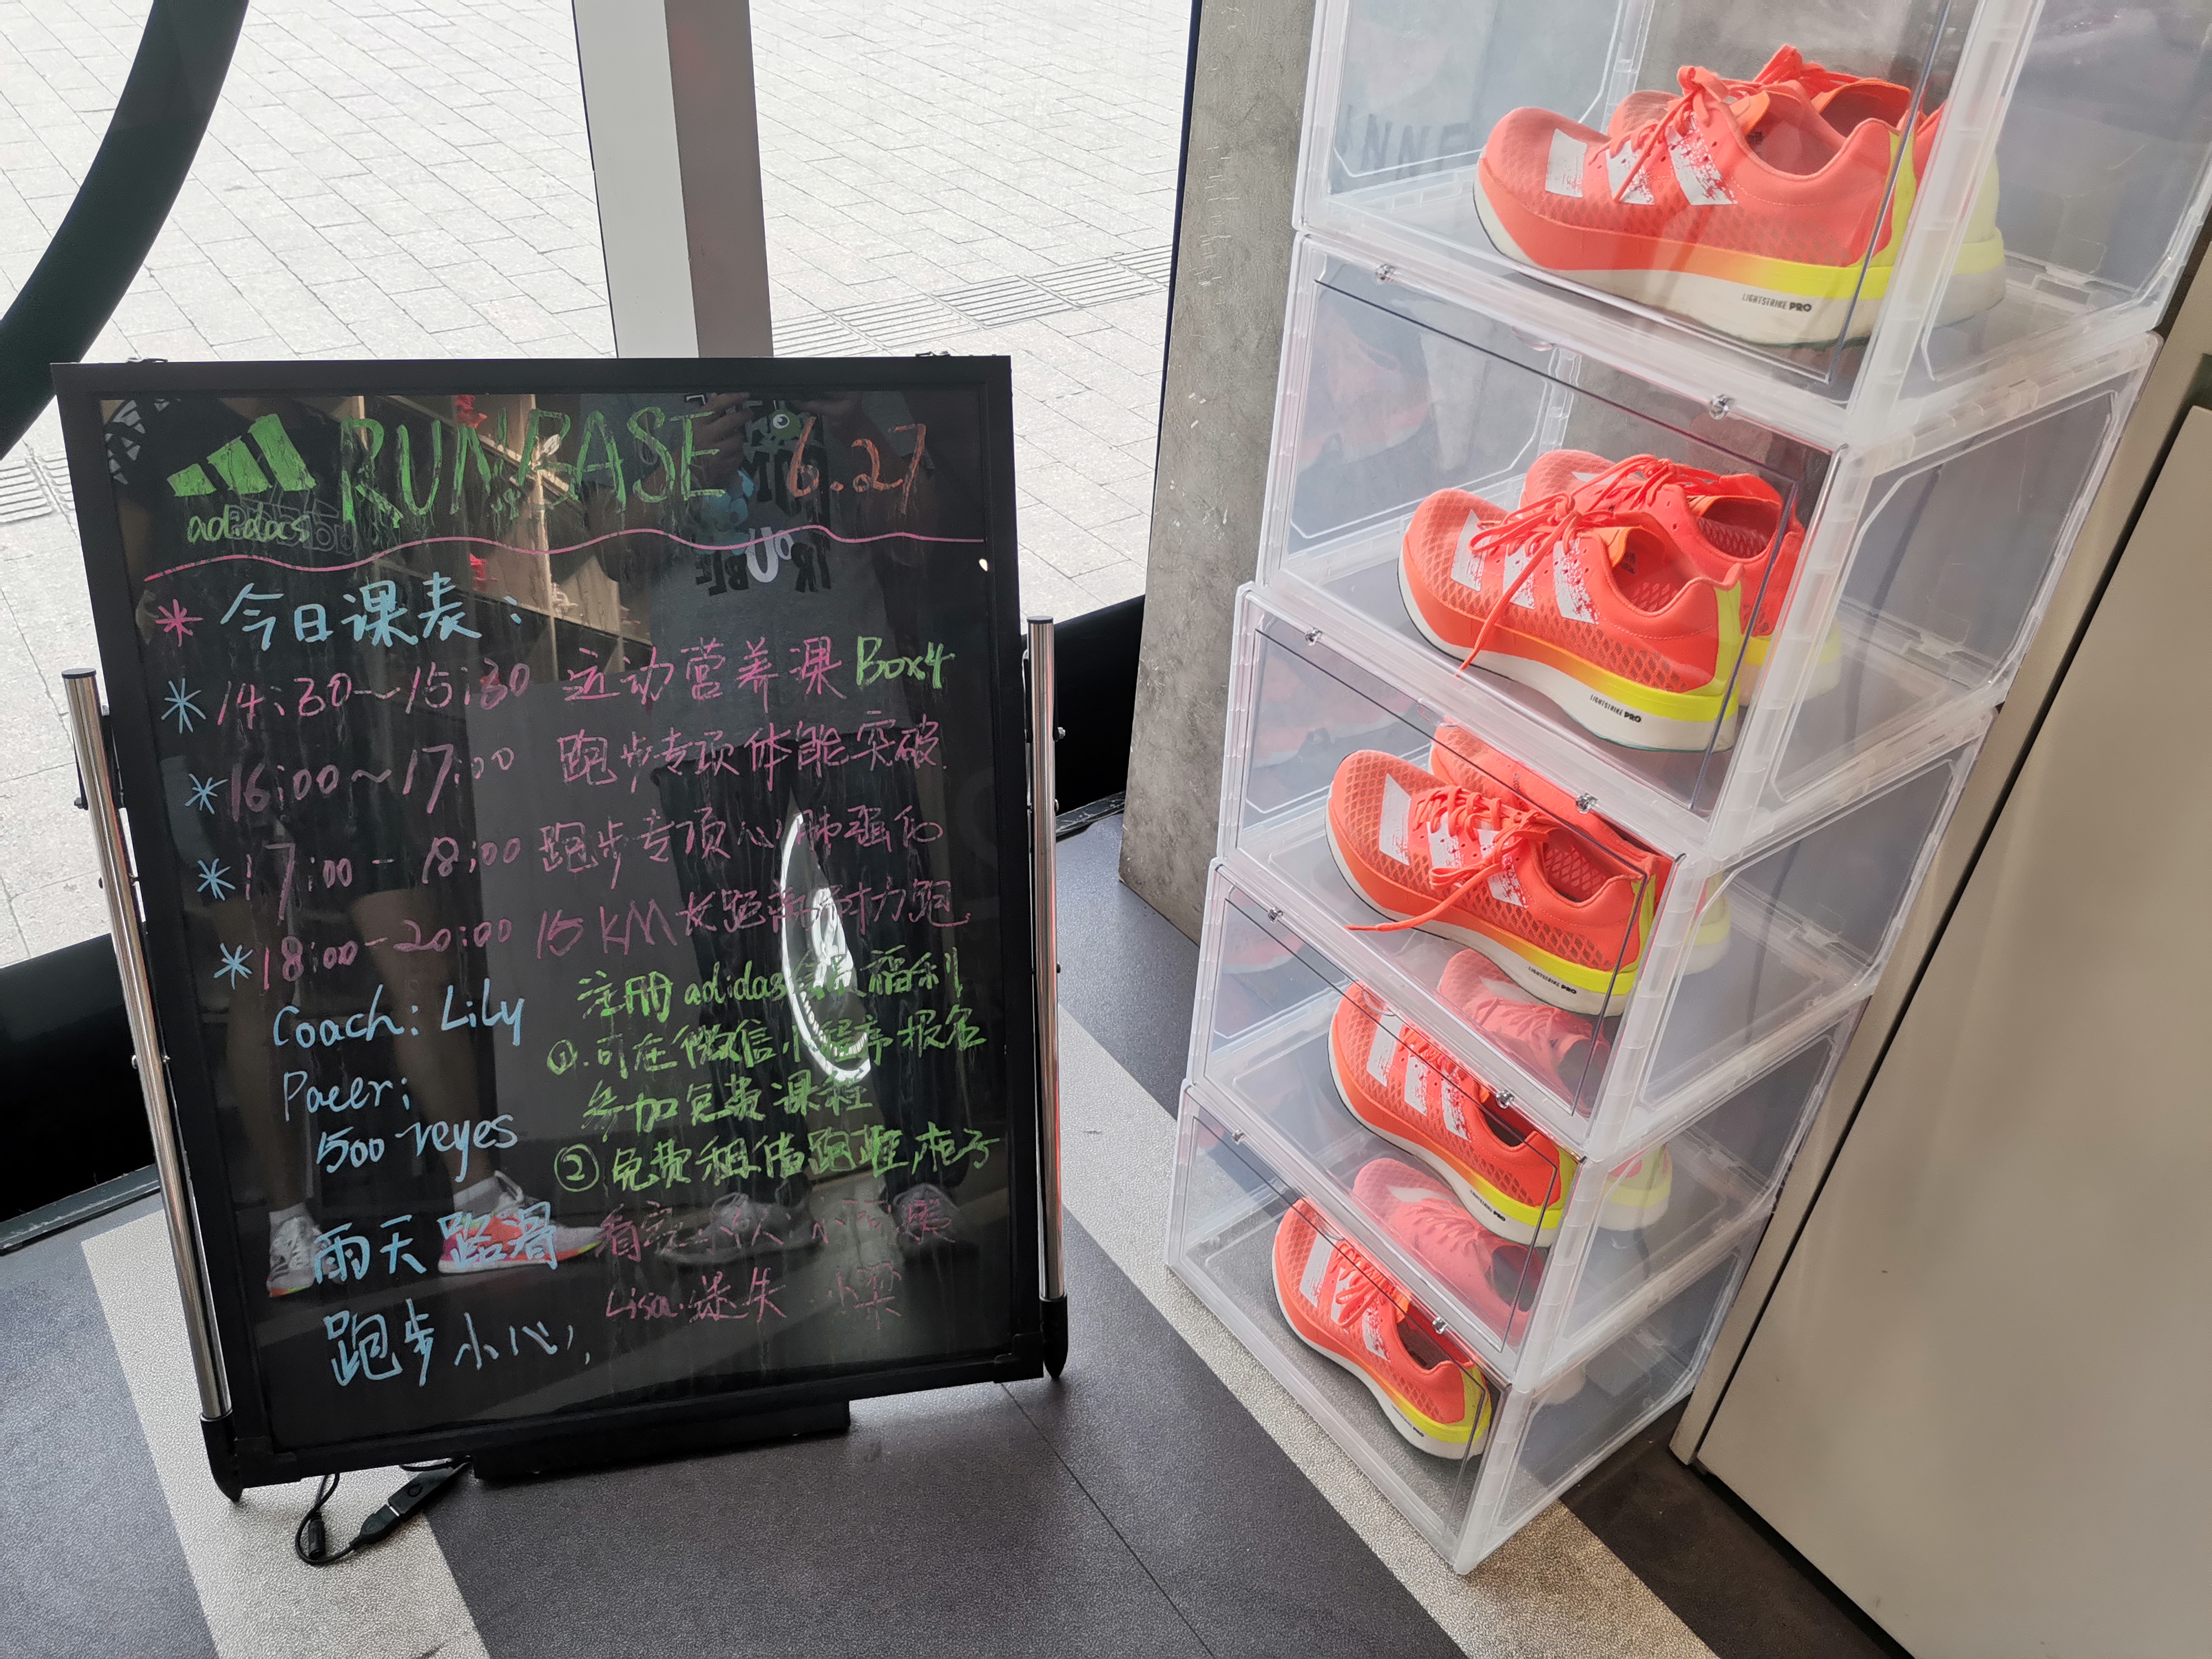 adidas RUNBASE 6.27
今日课表:
14:30~15:30 运动营养课 Box4
16:00~17:00 跑步专项体能突破
17:00-18:00 跑步专项心肺强化
18:00-20:00 15KM长距离耐力跑
Coach: Lily
Pacer:
500 reyes
注册adidas会员福利
①.可在微信小程序报名
参加免费课程
②免费租借跑鞋
雨天路滑
跑步小心,
Lisa.迷失
LIGHTSTRIKE PRO
LIGHTSTRIKE PRO
LIGHTSTRIKE PRO